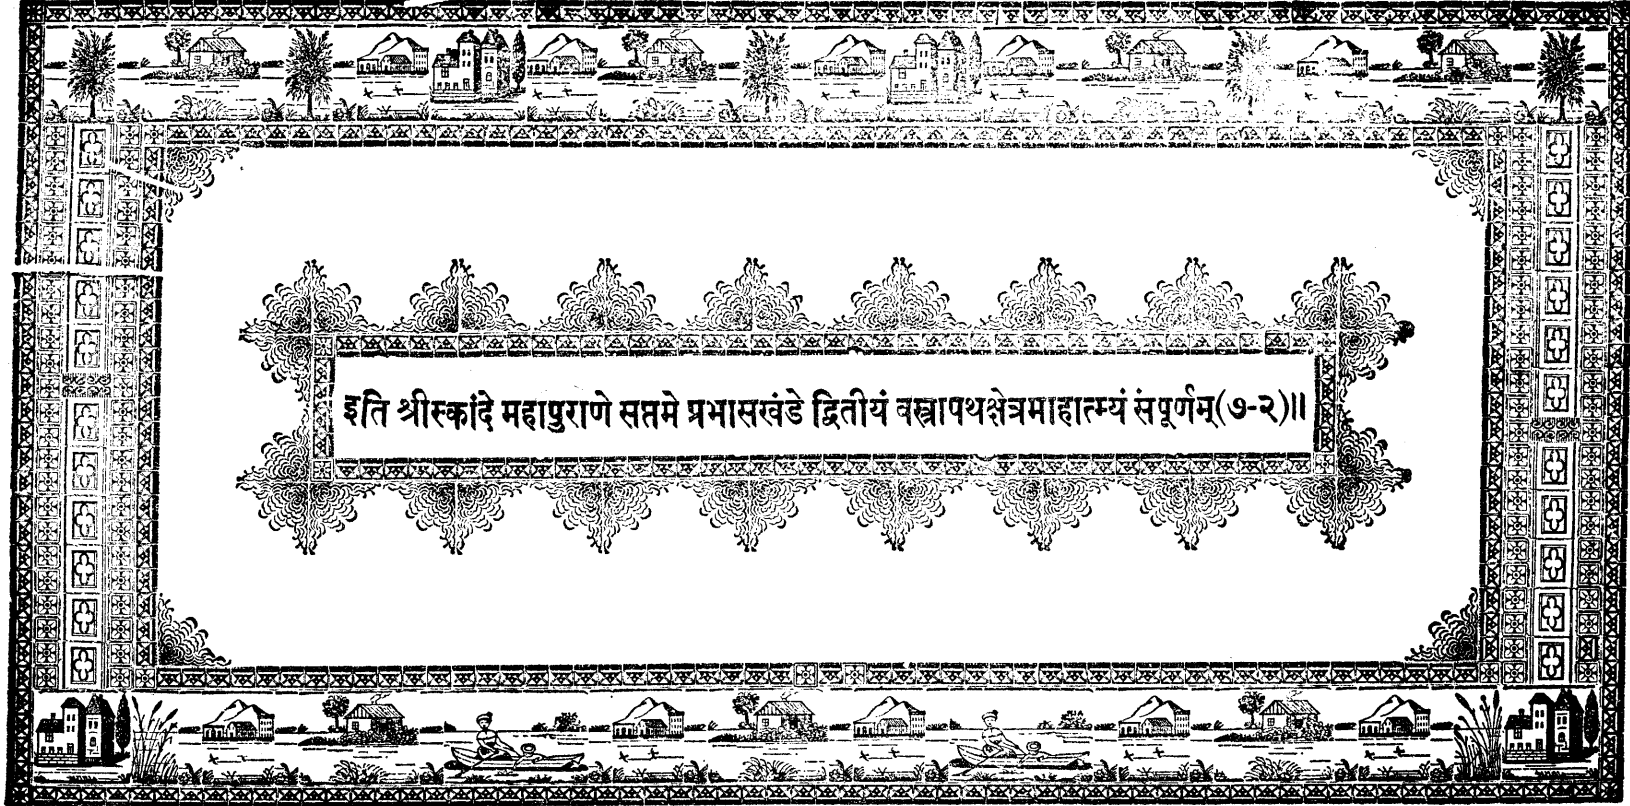 इति श्रीस्कांदे महापुराणे सप्तमे प्रभासखंडे द्वितीयं वस्त्रापथक्षेत्रमाहात्म्यं संपूर्णम्(७-२)॥